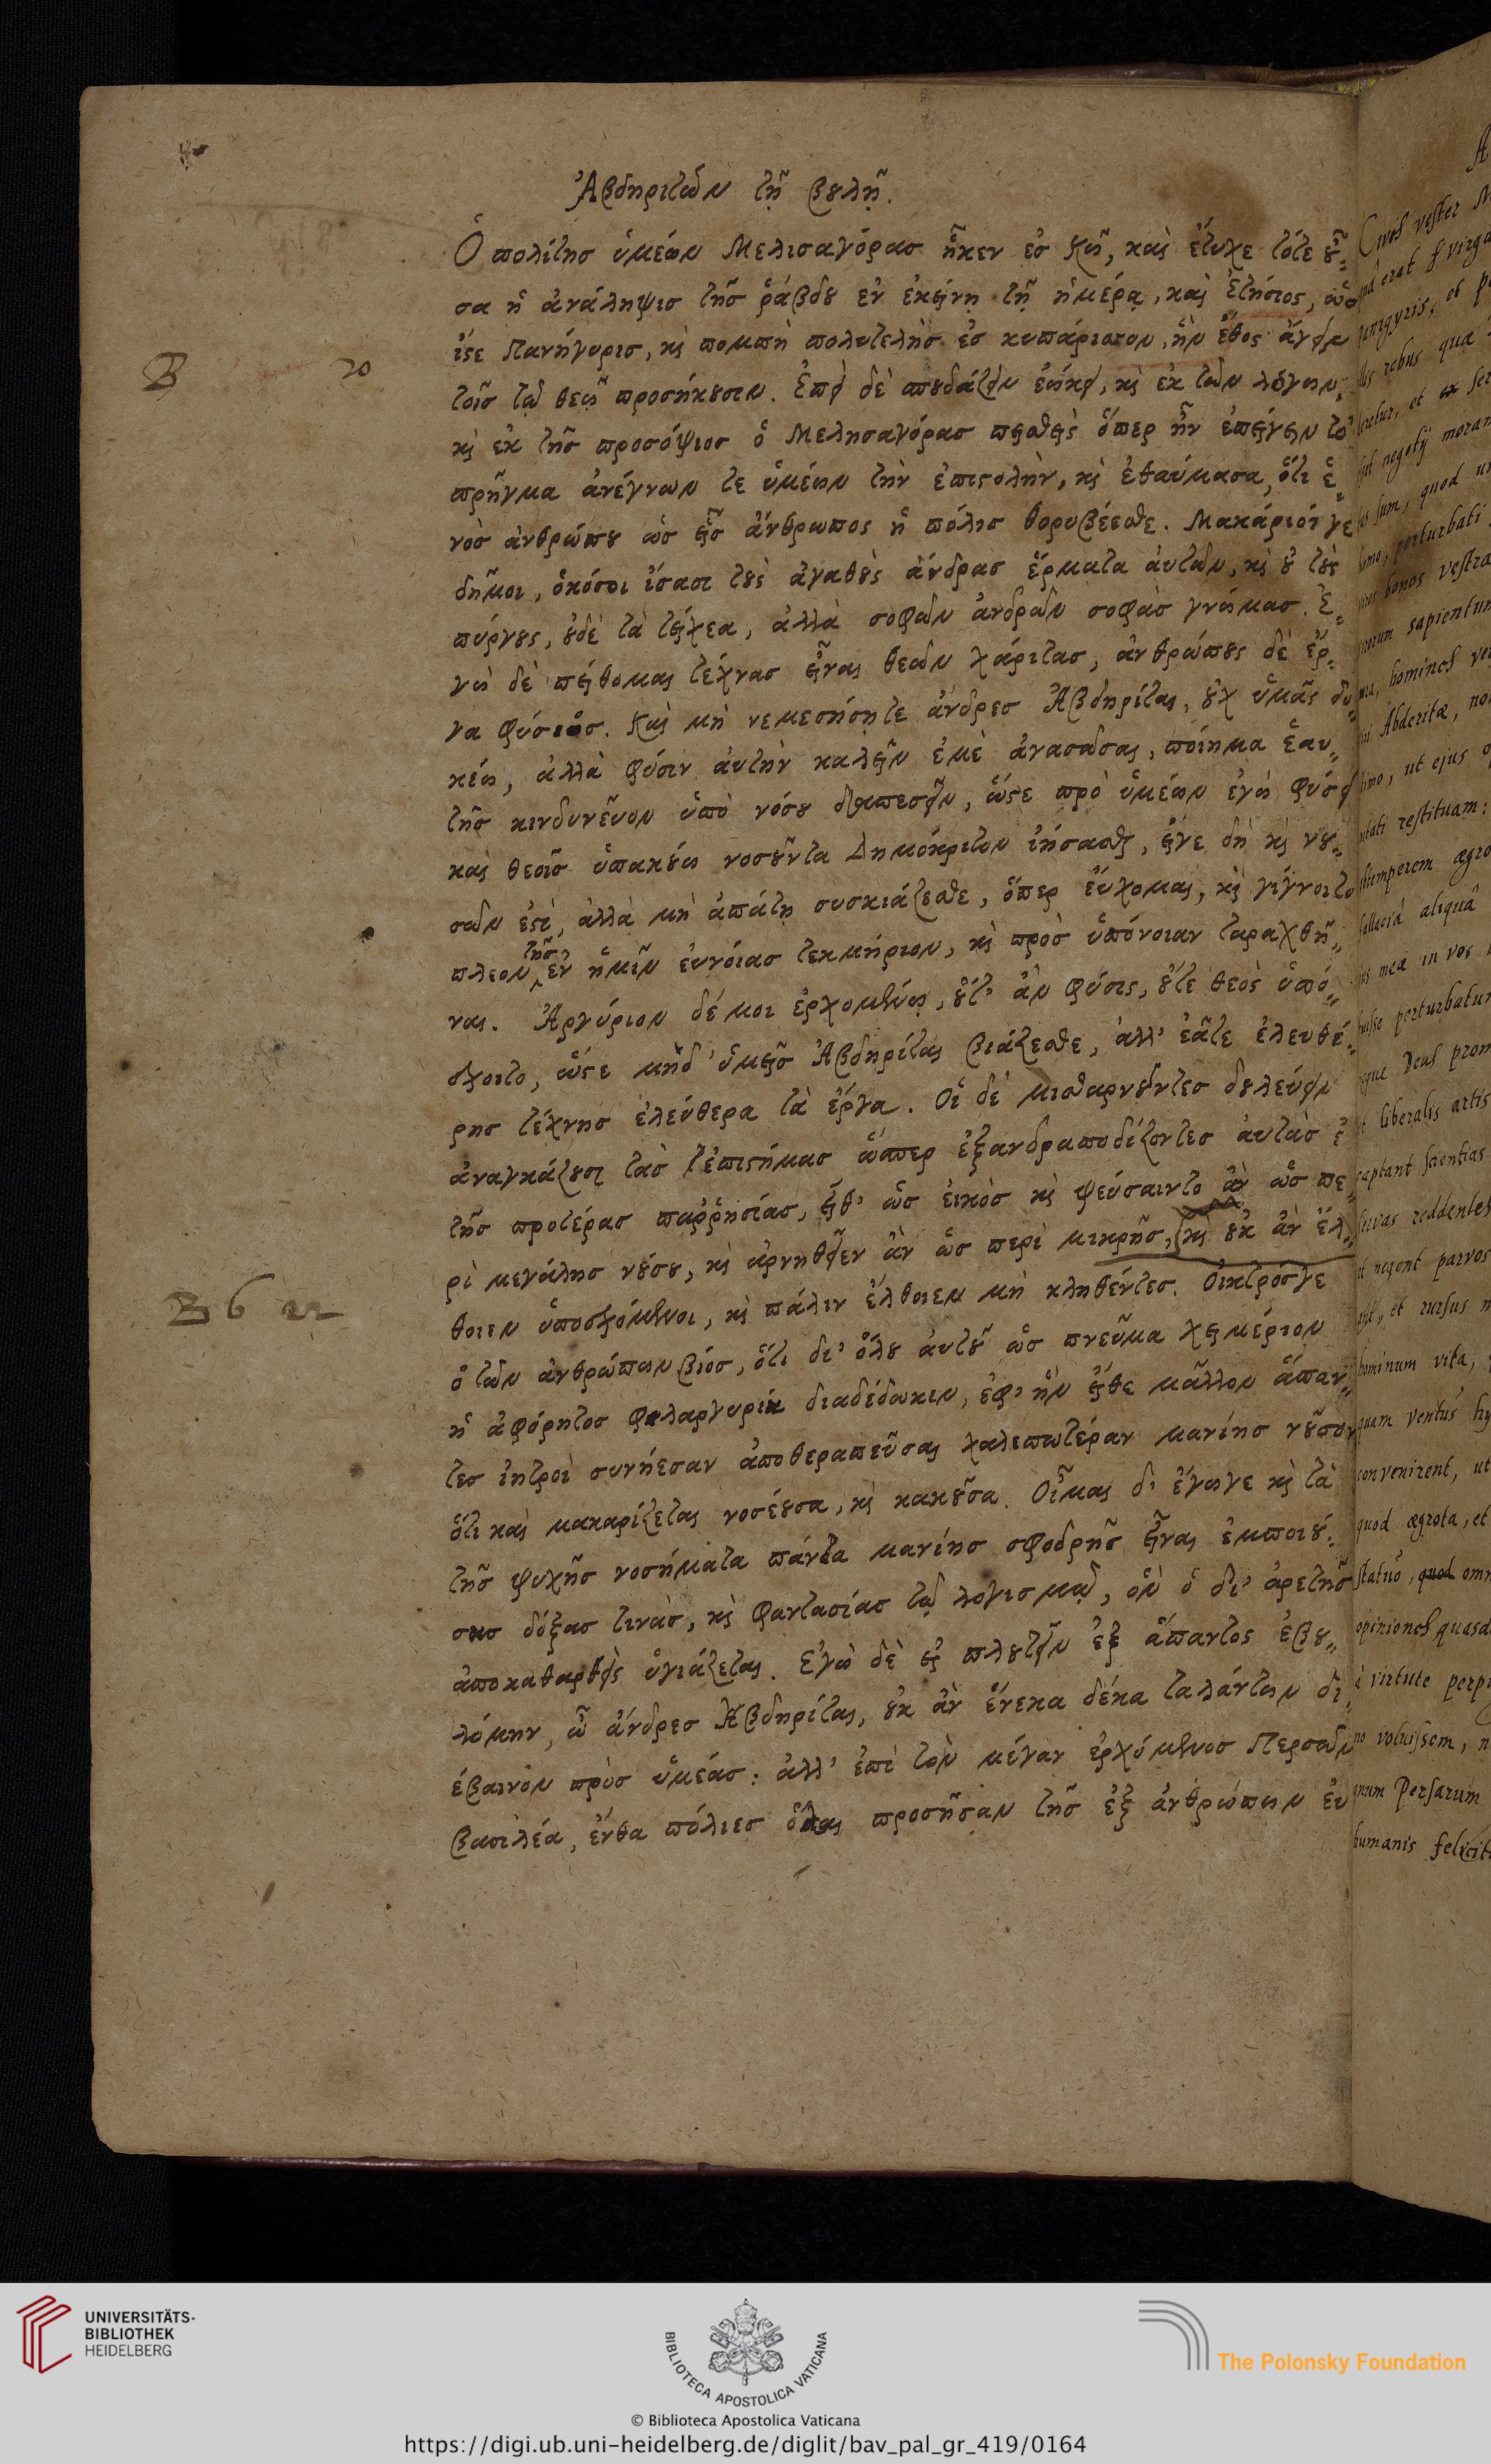 Ἀβδηριτῶν τῇ βουλῇ.
Ὁ πολίτης ὑμέων Μελισαγόρας ἧκεν ἐς Κῶ, καὶ ἔτυχε τότε οὖ„
σα ἡ ἀνάληψις τῆς ῥάβδου ἐν ἐκείνῃ τῇ ἡμέρᾳ, καὶ ἐτήσιος, ὡς
ἴστε πανήγυρις, κὶ πομπὴ πολυτελὴς ἐς κυπάρισσον, ἣν ἔθος ἄγειν
τοῖς τῷ θεῷ προσήκουσιν. Ἐπεὶ δὲ σπουδάζειν ἐῴκει, κὶ ἐκ τῶν λόγων„
κὶ ἐκ τῆς προσόψιος ὁ Μελησαγόρας πεισθεὶς ὅπερ ἦν ἐπείγειν τὸ
πρῆγμα ἀνέγνων τε ὑμέων τὴν ἐπιστολὴν, κὶ ἐθαύμασα, ὅτι ἑ„
νὸς ἀνθρώπου ὡς εἷς ἄνθρωπος ἡ πόλις θορυβέεσθε. Μακάριοί γε
δῆμοι, ὁκόσοι ἴσασι τοὺς ἀγαθοὺς ἄνδρας ἕρματα ἀυτῶν, κὶ οὐ τοὺς
πύργους, οὐδὲ τὰ τείχεα, ἀλλὰ σοφῶν ἀνδρῶν σοφὰς γνώμας. Ἐ„
γὼ δὲ πείθομαι τέχνας εἶναι θεῶν χάριτας, ἀνθρώπους δὲ ἔρ„
γα φύσιος. Καὶ μὴ νεμεσήσητε ἄνδρες Ἀβδηρῖται, οὐχ ὑμᾶς δο„
κέω, ἀλλὰ φύσιν ἀυτὴν καλεῖν ἐμὲ ἀνασῶσαι, ποίημα ἑαυ„
τῆς κινδυνεῦον ὑπὸ νόσου διαπεσεῖν, ὥστε πρὸ ὑμέων ἐγὼ φύσει
καὶ θεοῖς ὑπακούω νοσοῦντα Δημόκριτον ἰήσασθαι, εἴγε δὴ κὶ νοῦ„
σῶν ἐστὶ, ἀλλὰ μὴ ἀπάτῃ συσκιάζεσθε, ὅπερ εὔχομαι, κὶ γίγνοιτο
πλεον τῆς ἐν ἡμῖν ἐυνοίας τεκμήριον, κὶ πρὸς ὑπόνοιαν ταραχθῆ„
ναι. Ἀργύριον δέ μοι ἐρχομένῳ, οὔτ' ἂν φύσις, οὔτε θεὸς ὑπό„
σχοιτο, ὥστε μηδ' ὑμεῖς Ἀβδηρῖται βιάζεσθε, ἀλλ' ἐᾶτε ἐλευθέ„
ρης τέχνης ἐλεύθερα τὰ ἔργα. Οἱ δὲ μισθαρνοῦντες δουλεύειν
ἀναγκάζουσι τὰς ἐπιστήμας ὥσπερ ἐξανδραποδίζοντες ἀυτὰς ἐ
τῆς προτέρας παῤῥησίας, εἶθ' ὡς εἰκὸς κὶ ψεύσαιντο ἂν ὡς πε„
ρὶ μεγάλης νούσου, κὶ ἀρνηθεῖεν ἂν ὡς περὶ μικρῆς, κὶ οὐκ ἂν ἔλ„
θοιεν ὑποσχόμενοι, κὶ πάλιν ἔλθοιεν μὴ κληθέντες. Οἰκτρόσγε
ὁ τῶν ἀνθρώπων βίος, ὅτι δι' ὅλου ἀυτοῦ ὡς πνεῦμα χειμέριον
ἡ ἀφόρητος φιλαργυρίη διαδέδωκεν, ἐφ' ἣν εἴθε μᾶλλον ἅπαν„
τες ἰητροὶ συνήεσαν ἀποθεραπεῦσαι χαλεπωτέραν μανίης νοῦσον
ὅτι καὶ μακαρίζεται νοσέουσα, κὶ κακοῦσα. Οἶμαι δ' ἔγωγε κὶ τὰ
τῆς ψυχῆς νοσήματα πάντα μανίης σφοδρῆς εἶναι ἐμποιού„
σης δόξας τινὰς, κὶ φαντασίας τῷ λογισμῷ, ὧν ὁ δι' ἀρετῆς
ἀποκαθαρθεὶς ὑγιάζεται. Ἐγὼ δὲ εἰ πλουτεῖν ἐξ ἅπαντος ἐβου„
λόμην, ὦ ἄνδρες Ἀβδηρῖται, οὐκ ἂν ἕνεκα δέκα ταλάντων δι„
έβαινον πρὸς ὑμέας: ἀλλ' ἐπὶ τὸν μέγαν ἐρχόμενος Περσῶν
βασιλέα, ἔνθα πόλιες ὅλαι προσῆσαν τῆς ἐξ ἀνθρώπων ἐυ
B
20
B 6 22
Civis vester M
panigyris, et p
lis rebus qua
sus sum, quod u
omo, perturbati
viros bonos vestra
virorum sapientum
homines ve
Abderitæ, non
omo, ut ejus
restituam:
obtemperem ægro
fallaciâ aliquâ
mea in vos
perturbatur
que Deus prom
liberalis artis
captant scientias
servas reddentes
negent parvos
et rursus n
hominum vita,
quam ventus hy
convenirent, ut
quod ægrota, et
statuo, quod omn
opiniones quasd
virtute perp
voluissem, n
Persarum
humanis felicit
UNIVERSITÄTS-
BIBLIOTHEK
HEIDELBERG
BIBLIOTECA APOSTOLICA VATICANA
© Biblioteca Apostolica Vaticana
The Polonsky Foundation
https://digi.ub.uni-heidelberg.de/diglit/bav_pal_gr_419/0164